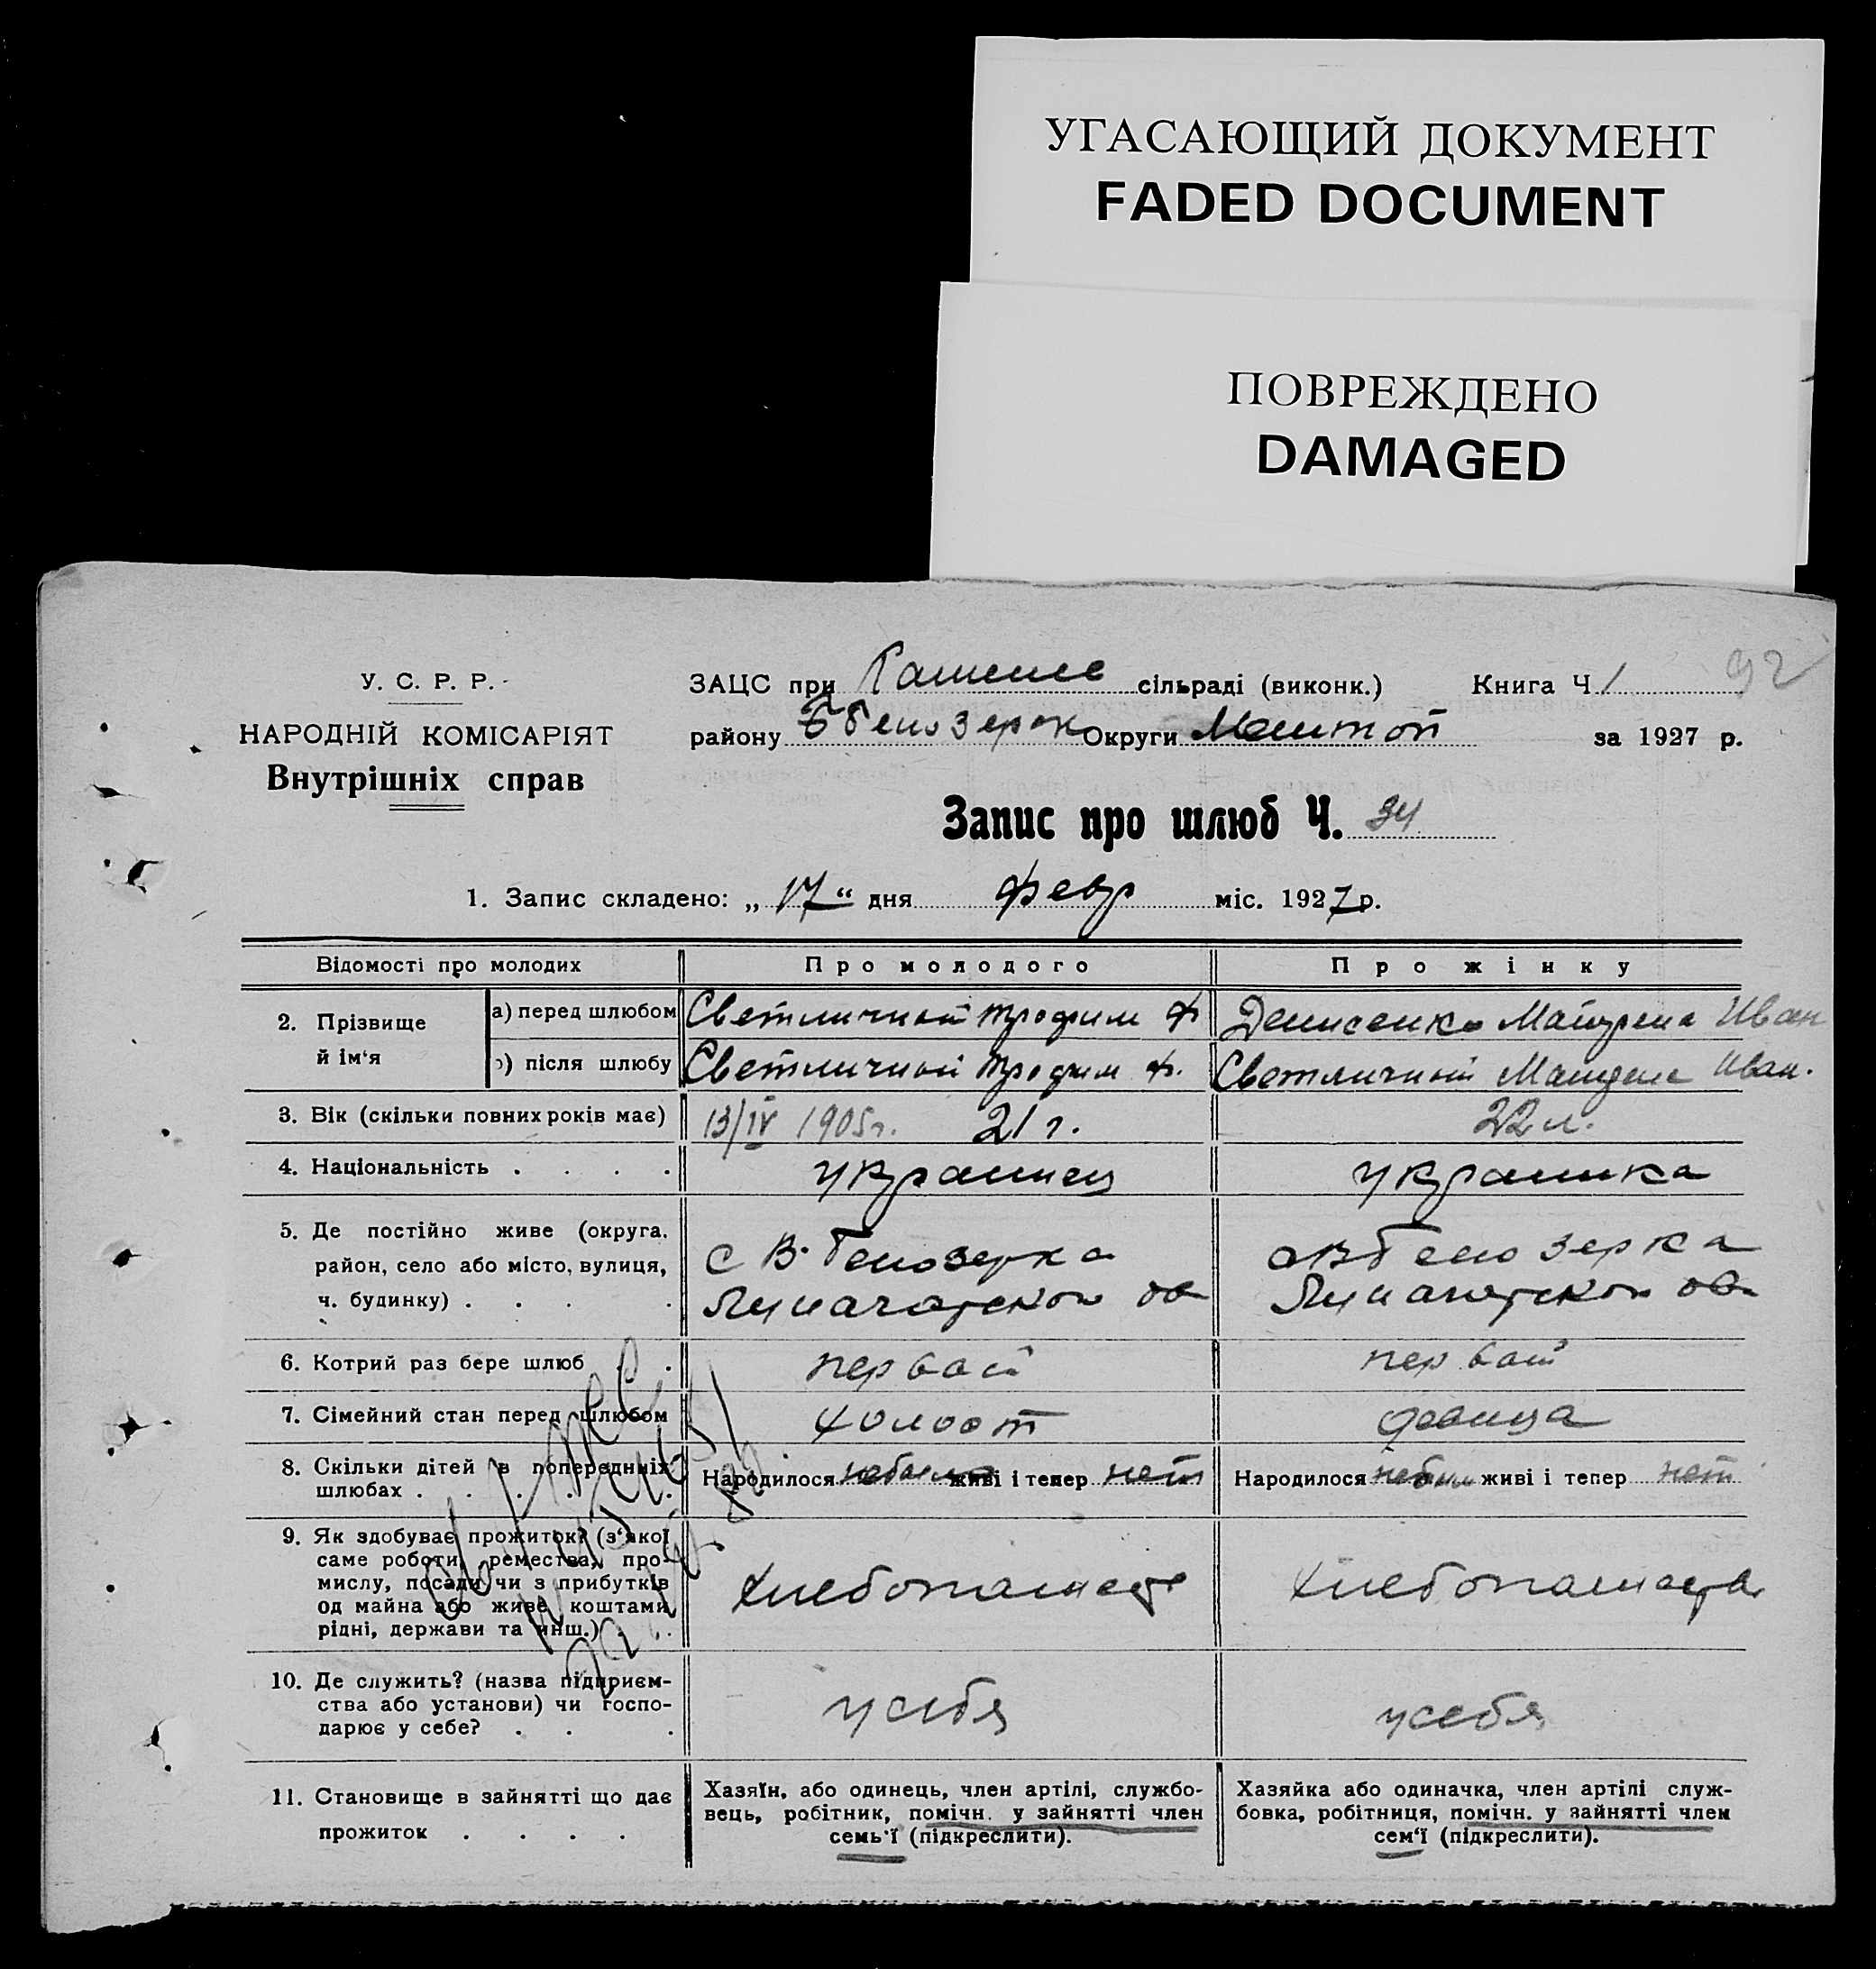 УГАСАЮЩИЙ ДОКУМЕНТ
FADED DOCUMENT
ПОВРЕЖДЕНО
DAMAGED
92
У. С. Р. Р.
НАРОДНІЙ КОМІСАРІЯТ
Внутрішніх справ
ЗАЦС при сільраді (виконк.) Книга Ч 1
району Округи за 1927 р.
Запис про шлюб Ч. 34
1. Запис складено: „ 17 “ дня февр міс. 1927 р.
Відомості про молодих
Про молодого
Про жінку
2. Прізвище й ім‘я
а) перед шлюбом
Светличный Трофим Ф
Денисенко Иван
б) після шлюбу
Светличный Трофим Ф.
Светличный Иван.
3. Вік (скільки повних років має)
13/IV 1905г. 21 г.
22 л.
4. Національність . . . .
украинец
украинка
5. Де постійно живе (округа,
район, село або місто, вулиця,
ч. будинку) . . . .
с В. Белозерка
В Белозерка
6. Котрий раз бере шлюб . .
первый
первый
7. Сімейний стан перед шлюбом
холост
девица
8. Скільки дітей в попередніх
шлюбах . . . . . .
Народилося небыло живі і тепер нет
Народилося небыли живі і тепер нет
9. Як здобуває прожиток? (з‘якої
саме роботи, ремества, про-
мислу, посади чи з прибутків
од майна або живе коштами
рідні, держави та инш.) . .
хлебопашец
10. Де служить? (назва підприєм-
ства або установи) чи госпо-
дарює у себе? . . .
у себя
у себя
11. Становище в зайнятті що дає
прожиток . . . .
Хазяїн, або одинець, член артілі, службо-
вець, робітник, помічн. у зайнятті член
семь‘ї (підкреслити).
Хазяйка або одиначка, член артілі служ-
бовка, робітниця, помічн. у зайнятті член
сем‘ї (підкреслити).